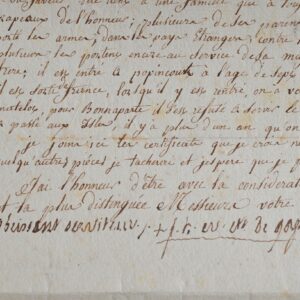 une famille que a
Drapeaux de l'honneur; plusieurs de ses paren
porté les armes, dans les pays Etrangers; contre
plusieurs les portent encore au Service de Sa ma
frere; il est entré a popincourt a l'age de Sept
il est sorti de france, lorsqu'il y est rentré, on a v
matelos, pour Bonnaparte il s'est refusé a servir le
a passé aux Isles, il y a plus d'un an qu'on
je joins ici le certificate que je crois n
quelqu'autres pièces je tacherai et j'espere que je p
J'ai l'honneur d'être avec la considerat
et la plus distinguée Messieurs votre
obéissant serviteur